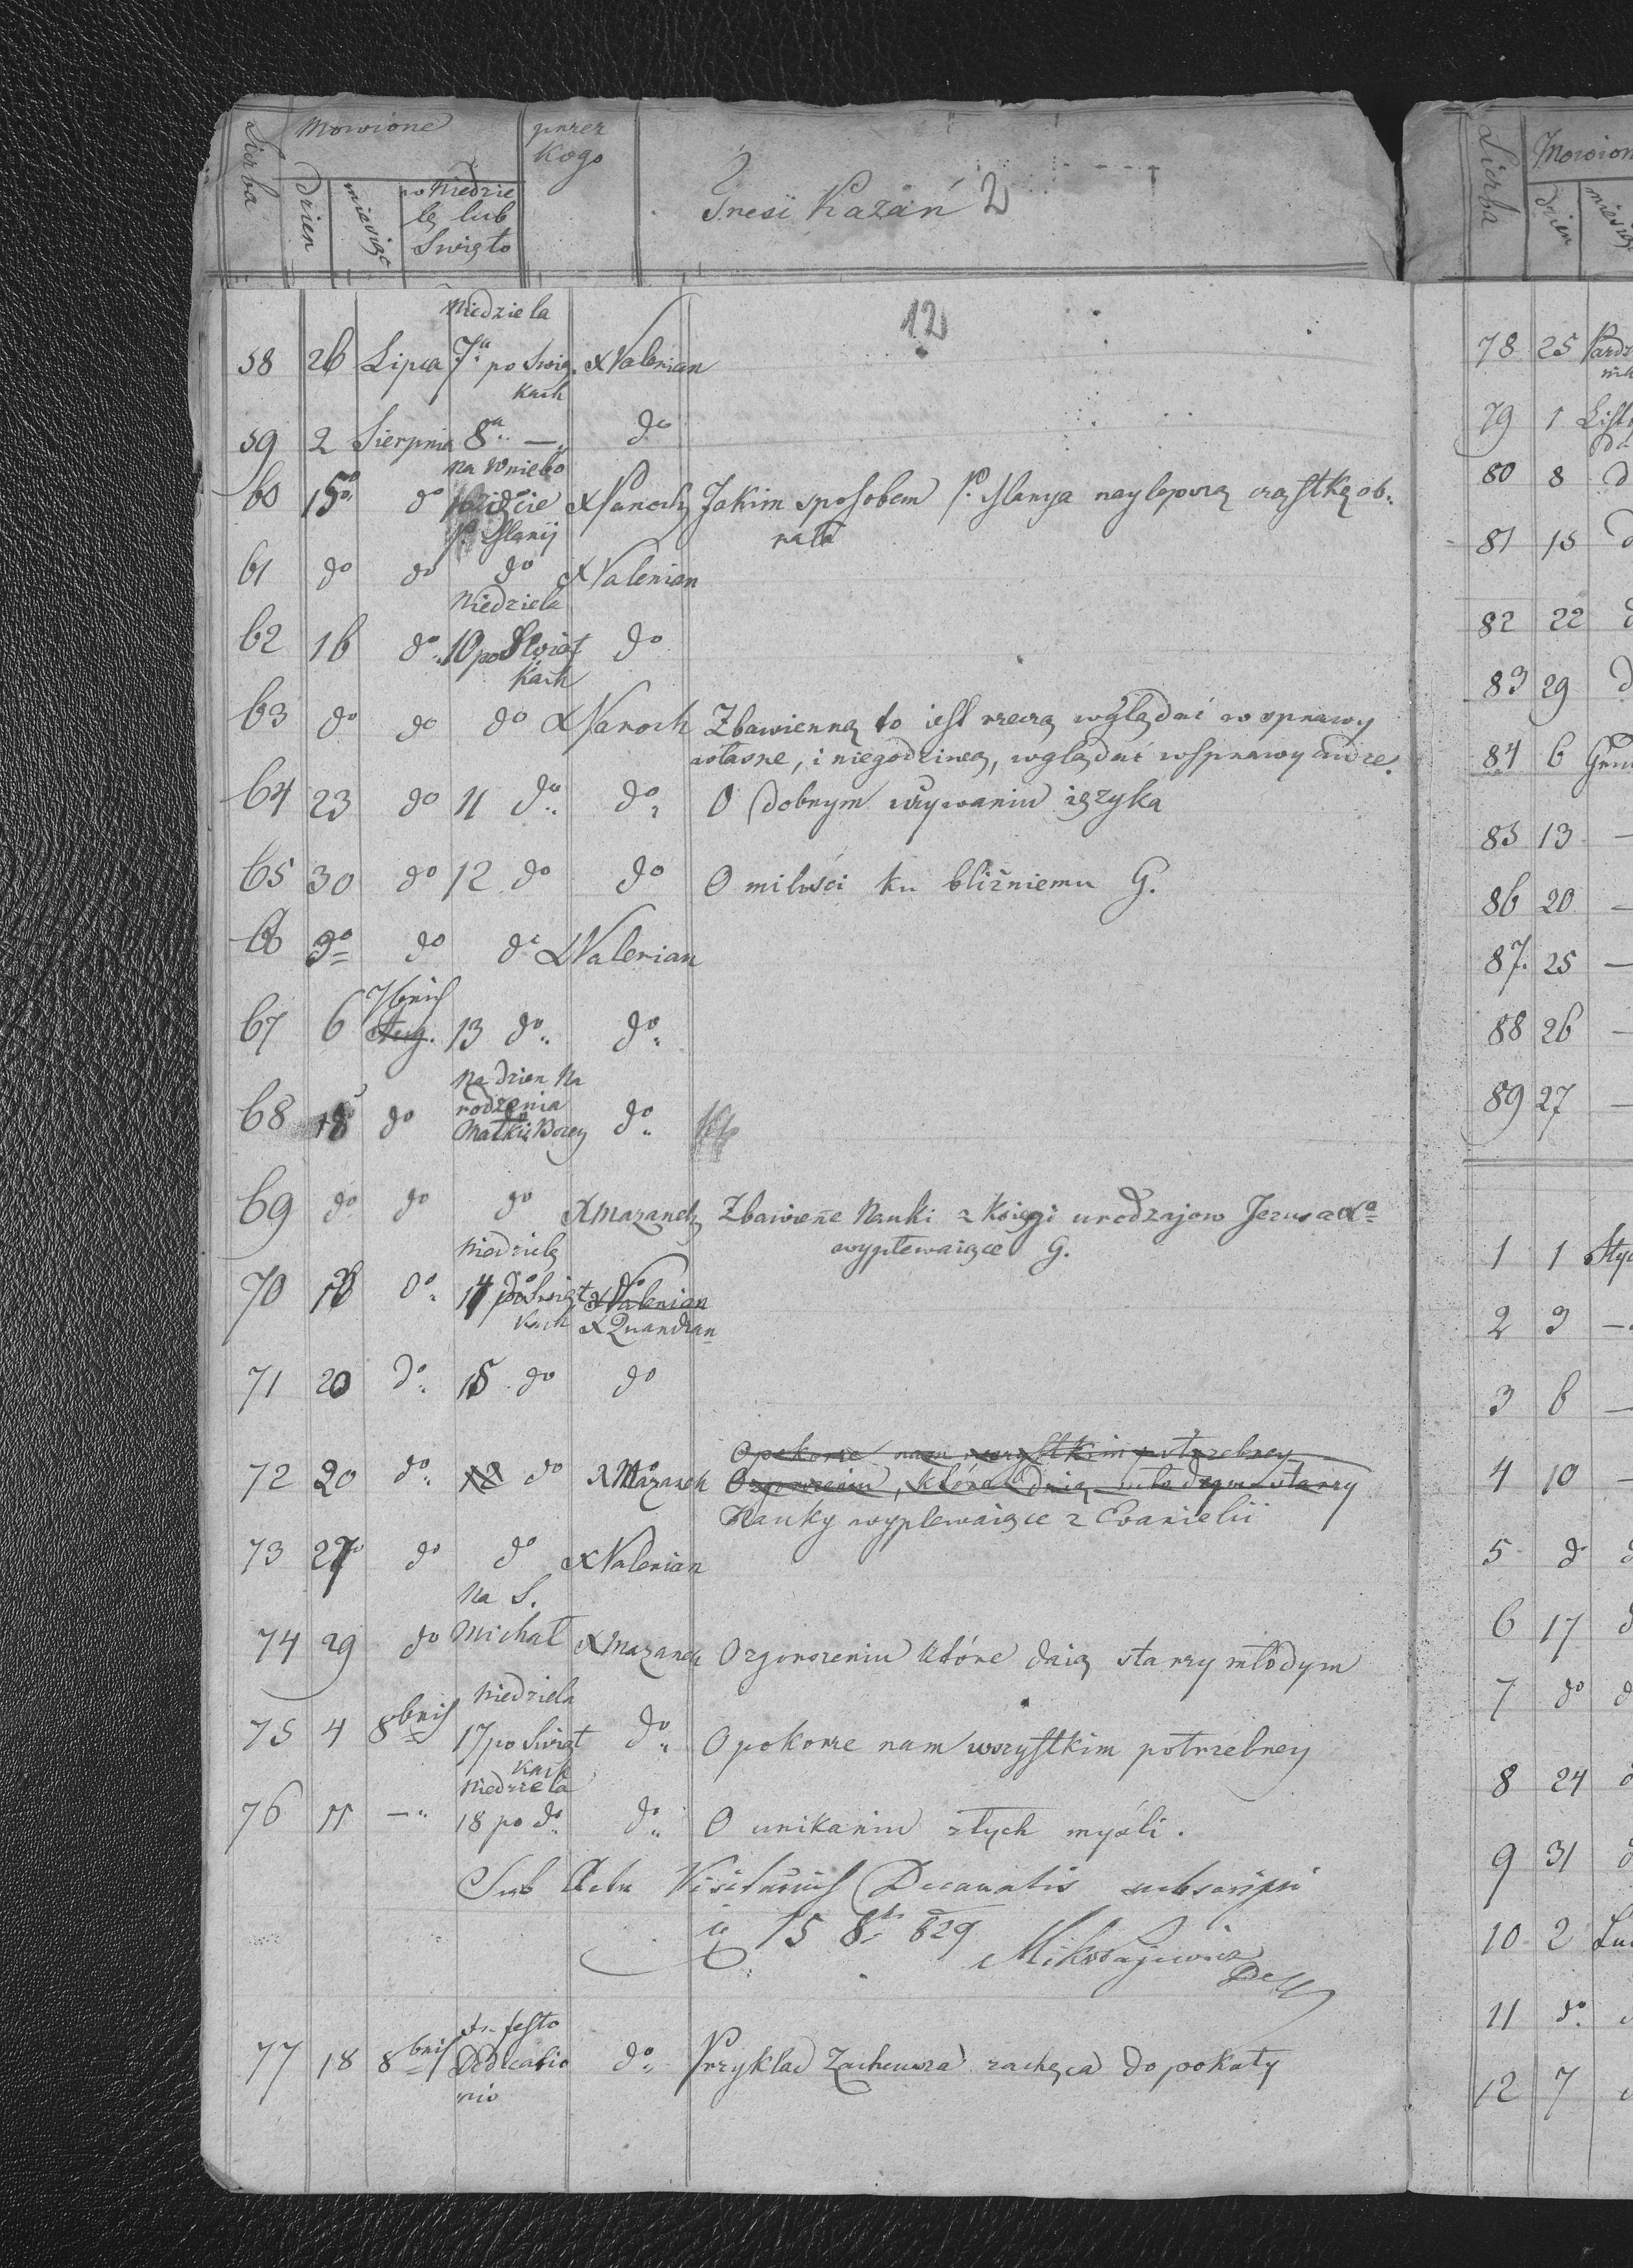 Liczba Mowione przez
kogo
dzien miesiąc po Niedzie
lę lub
Swięto
Treśi Kazań
12
Niedziela
58 26 Lipca 7a po Swią. X Valerian
kach
59 2 Sierpnia 8a — do
na Wniebo
60 15 do wzięcie X Panoch Jakim sposobem P. Marya naylepszą cząstkę ob-
P. Maryi rała
61 do do do X Valerian
Niedziela
62 16 do 10 po Swiąt do
kach
63 do do do X Panoch Zbawienną to iest rzeczą wglądać w sprawy
własne, i niegodziwą, wglądać w sprawy cudze.
64 23 do 11 do do O dobrym używaniu ięzyka
65 30 do 12 do do O miłości ku bliźniemu G.
66 do do do X Valerian
67 6 7bris Aug. 13 do do
na dzien Na
68 do rodzenia
Matki Bozey do
69 do do do X Mazanek Zbawienne Nauki z Księgi urodzajow Jezusa Xa
wypływaiące G.
Niedzielę
70 do 14 po Swiąt X Valerian
kach X Quardian
71 20 do 15 do do
O pokorze nam wszystkim potrzebney
72 20 do do X Mazanek O zgorszeniu, które daią młodym starzy
Nauky wyplewaiące z Ewanielii
73 27 do do X Valerian
Na S.
74 29 do Michał X Mazanek O zgorszeniu które daią starzy młodym
Niedziela
75 4 8bris 17 po Swiąt do O pokorze nam wszystkim potrzebney
kach
Niedziela
76 11 — 18 po do do O unikaniu złych myśli.
Sub Actu Visitationis Decanalis subscripsi
15 8b 829
Mikołajewicz
In festo
77 18 8bris Dedicatio do Przykład Zacheusza zachęca do pokuty
nis
Liczba Mowion
dzien miesią
78 25 Pazdz
79 1 Listo
80 8
81 15
82 22
83 29
84 6 Gru
85 13 —
86 20 —
87 25 —
88 26 —
89 27 —
1 1 Styc
2 3 —
3 6 —
4 10 —
5 do
6 17
7 do
8 24
9 31
10 2 Lu
11 do
12 7